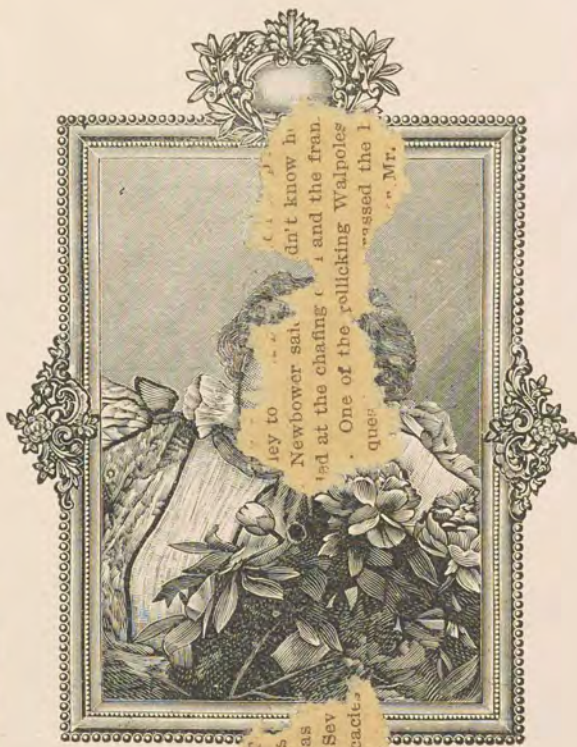 ley to
Newbower sai dn't know h
led at the chafing and the fran
One of the rollicking Walpoles
ques assed the
Mr.
as
Sev
cacies